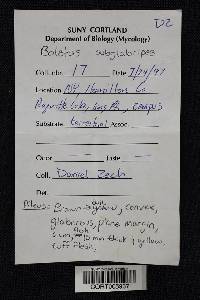 DZ
SUNY CORTLAND
Department of Biology (Mycology)
Boletus subglabripes
Coll. nbr. 17 Date 7/24/97
Location NY, Hamilton Co
Raquette Lake, campus
Substrate terrestrial Assoc.
Odor Latex
Coll. Daniel Zech
Det.
Pileus: Brown convex,
glabrous, plane margin,
6 cm, 10 mm thick, yellow
buff flesh.